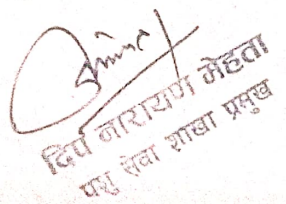 दिप नारायण मेहता
पशु सेवा शाखा प्रमुख